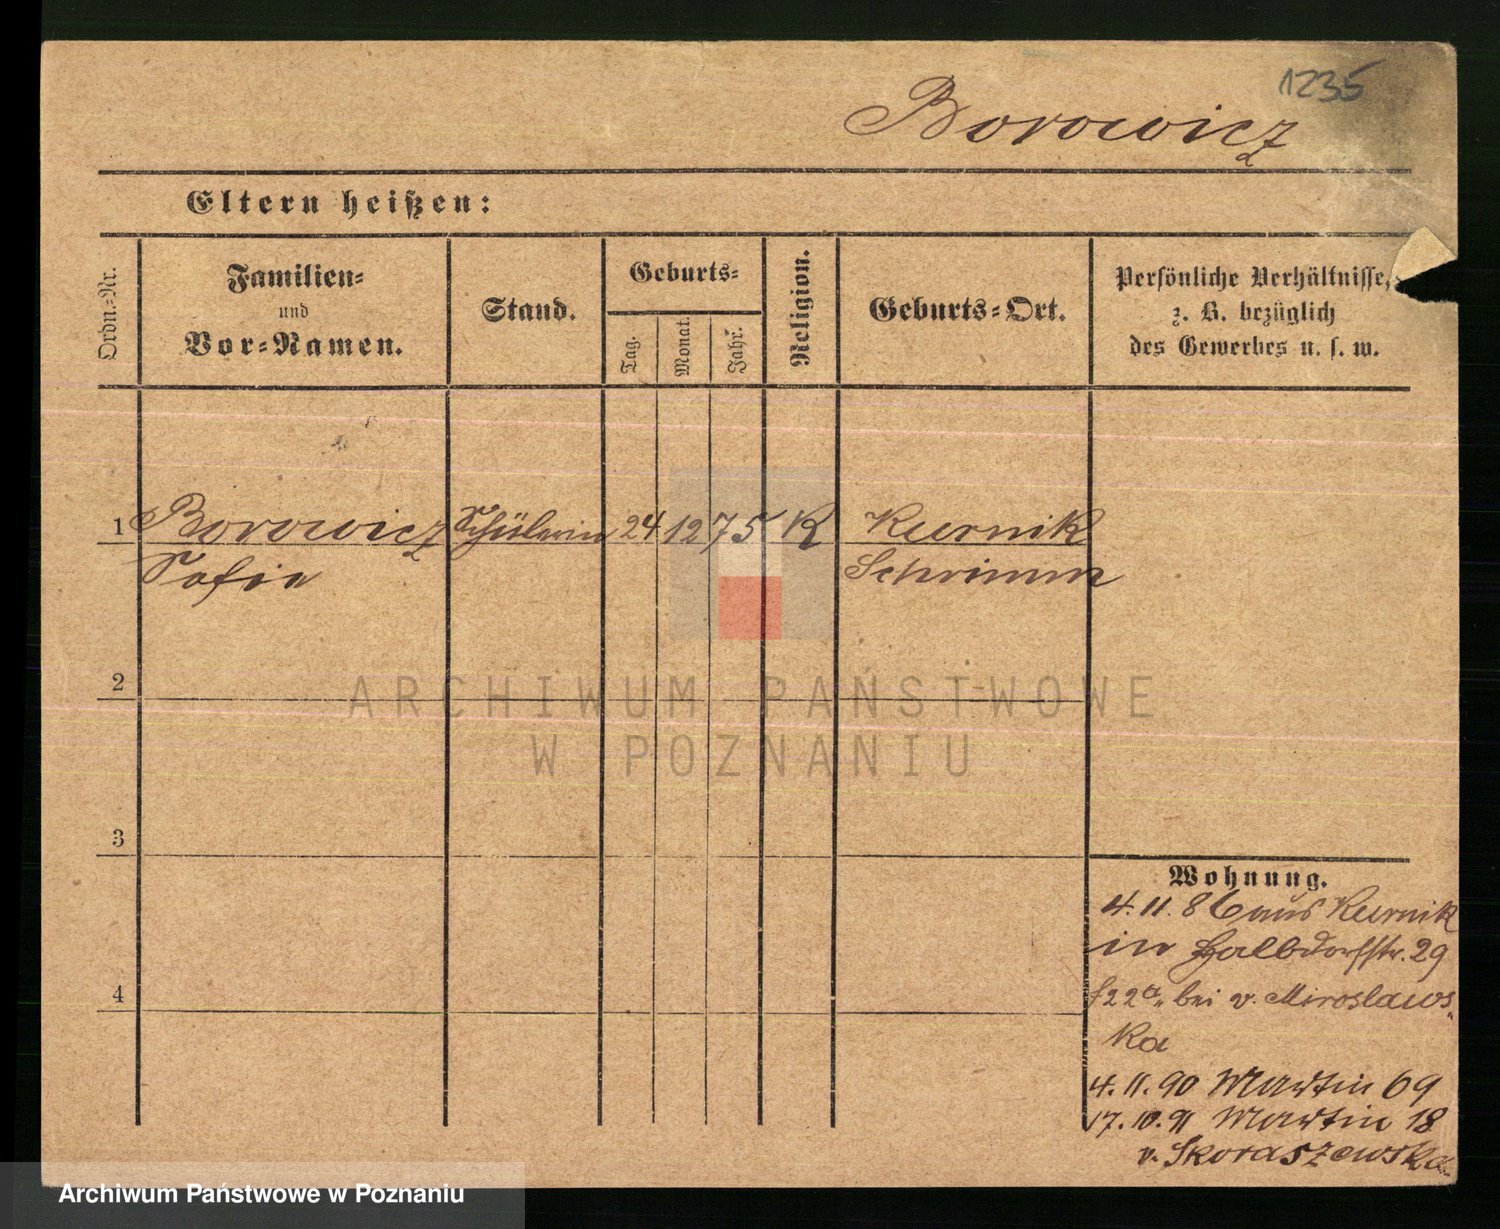 1235
Borowicz
Eltern heißen:
Ordn.-Nr.
Familien-
und
Vor-Namen.
Stand.
Geburts-
Tag.
Monat.
Jahr.
Religion.
Geburts-Ort.
Persönliche Verhältnisse,
z. B. bezüglich
des Gewerbes u. s. w.
1 Borowicz Schülerin 24 12 75 K Kurnik
Sofie Schrimm
2
ARCHIWUM PAŃSTWOWE
W POZNANIU
3
Wohnung.
4. 11. 86 aus Kurnik
in Halbdorfstr. 29
bei v. Miroslaws-
ka
4
4. 11. 90 Martin 69
17. 10. 91 Martin 18
v. Skoraszewska
Archiwum Państwowe w Poznaniu